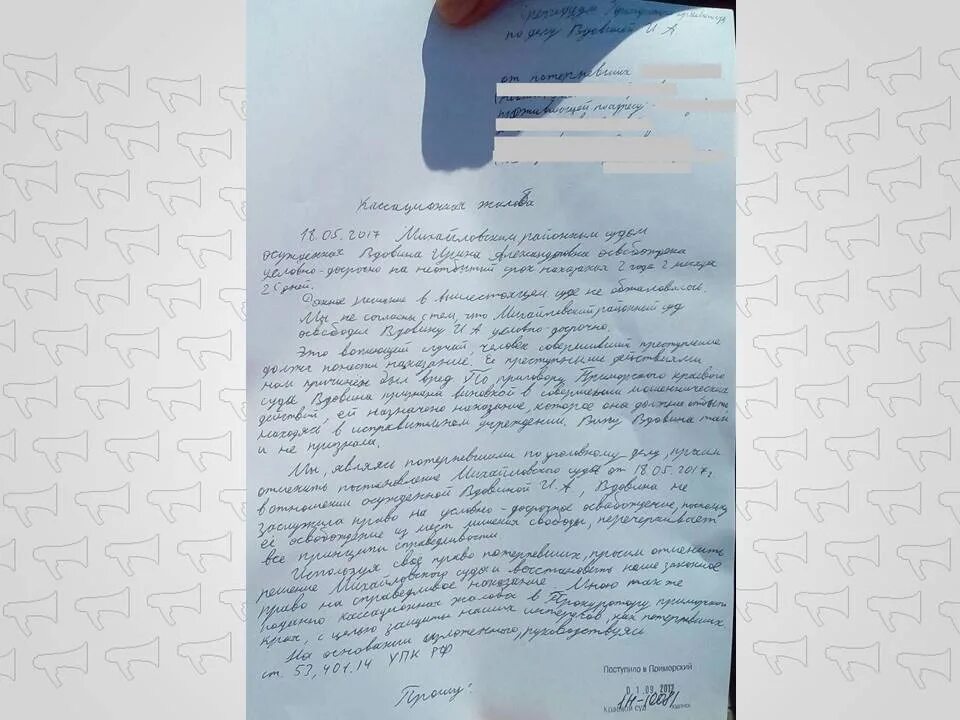 по делу Вдовиной И А
от потерпевших
проживающей по адресу
Кассационная жалоба
18.05.2017 Михайловским районным судом
осужденная Вдовина Ирина Александровна освобождена
условно-досрочно на неотбытый срок наказания 2 года 2 месяца
26 дней.
Данное решение в вышестоящем суде не обжаловалось.
Мы не согласны с тем, что Михайловский районный суд
освободил Вдовину И А условно-досрочно.
Это вопиющий случай, человек совершивший преступление
должен понести наказание. Её преступными действиями
нам причинен был вред. По приговору Приморского краевого
суда Вдовина признана виновной в совершении мошеннических
действий, ей назначено наказание, которое она должна отбывать
находясь в исправительном учреждении. Вину Вдовина так
и не признала.
Мы, являясь потерпевшими по уголовному делу, просим
отменить постановление Михайловского суда от 18.05.2017г.
в отношении осужденной Вдовиной И.А, Вдовина не
заслужила право на условно-досрочное освобождение, поскольку
её освобождение из мест лишения свободы, перечеркивает
все принципы справедливости.
Используя своё право потерпевших, просим отменить
решение Михайловского суда и восстановить наше законное
право на справедливое наказание. Мною также
подана кассационная жалоба в Прокуратуру приморского
края, с целью защиты наших интересов, как потерпевших.
На основании изложенного, руководствуясь
ст. 53, 401.14 УПК РФ
Прошу:
Поступило в Приморский
01.09.2017
Краевой суд